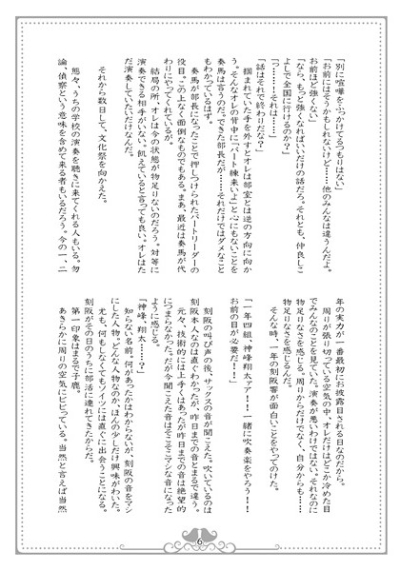 「別に喧嘩をふっかけてるつもりはない」
「お前にはそうかもしれないけど……他のみんなは違うんだよ。
お前ほど強くない」
「なら、もっと強くなればいいだけの話だろ。それとも、仲良しこ
よしで全国に行けるのか？」
「っ………それは……」
「話はそれで終わりだな？」
掴まれていた手を外すとオレは部室とは逆の方向に向か
う。そんなオレの背中に「パート練来いよ」と心にもないことを
奏馬は言うのだ。できた部長だが……それだけではダメなこと
もわかっているはず。
奏馬が部長になったことで押しつけられたパートリーダーの
役目。この上なく面倒なものでもある。まあ、最近は奏馬が代
わりにやってくれているが。
結局の所、オレは今の状態が物足りないのだろう。対等に
演奏できる相手がいない。飢えていると言っても良い。オレはた
だ演奏していたいだけなんだ。
それから数日して、文化祭を向かえた。
態々、うちの学校の演奏を聴きに来てくれる人もいる。勿
論、偵察という意味を含めて来る者もいるだろう。今の一、二
年の実力が一番最初にお披露目される日なのだから。
周りが張り切っている空気の中、オレだけはどこか冷めた目
でみんなのことを見ていた。演奏が悪いわけではない。それなのに
物足りなさを感じる。周りからだけでなく、自分からも……
物足りなさを感じるんだ。
そんな時、一年の刻阪響が面白いことをやってのけた。
「一年四組、神峰翔太ァァ！！一緒に吹奏楽をやろう！！
お前の目が必要だ！！」
刻阪の叫び声の後、サックスの音が聞こえた。吹いているのは
刻阪本人なのは直ぐわかったが、昨日までの音とまるで違う。
元々、技術的には上手くはあったが昨日までの音は絶望的
につまらなかった。だが今聞こえた音はそこそこマシな音になった
ように感じる。
「神峰、翔太……？」
知らない名前。何があったかはわからないが、刻阪の音をマシ
にした人物。どんな人物なのかほんの少しだけ興味がわいた。
尤も、何もしなくてもソイツには直ぐに出会うことになる。
刻阪がその日のうちに部活に連れてきたからだ。
第一印象はまるで子鹿。
あきらかに周りの空気にビビっている。当然と言えば当然
6